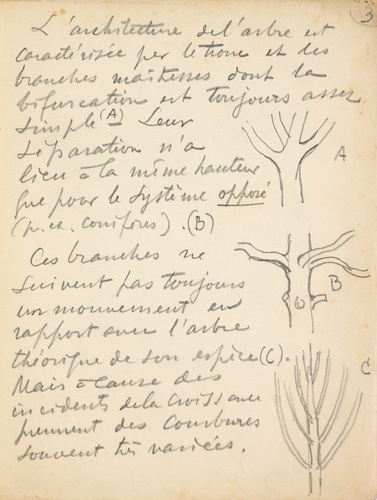 3
L'architecture de l'arbre est
caractérisée par le tronc et les
branches maîtresses dont la
bifurcation est toujours assez
simple (A) Leur
séparation n'a
lieu à la même hauteur
que pour le système opposé
(p. ex. conifères). (B)
Ces branches ne
suivent pas toujours
un mouvement en
rapport avec l'arbre
théorique de son espèce (C).
Mais à cause des
incidents de la croissance
prennent des courbures
souvent très variées.
A
B
C